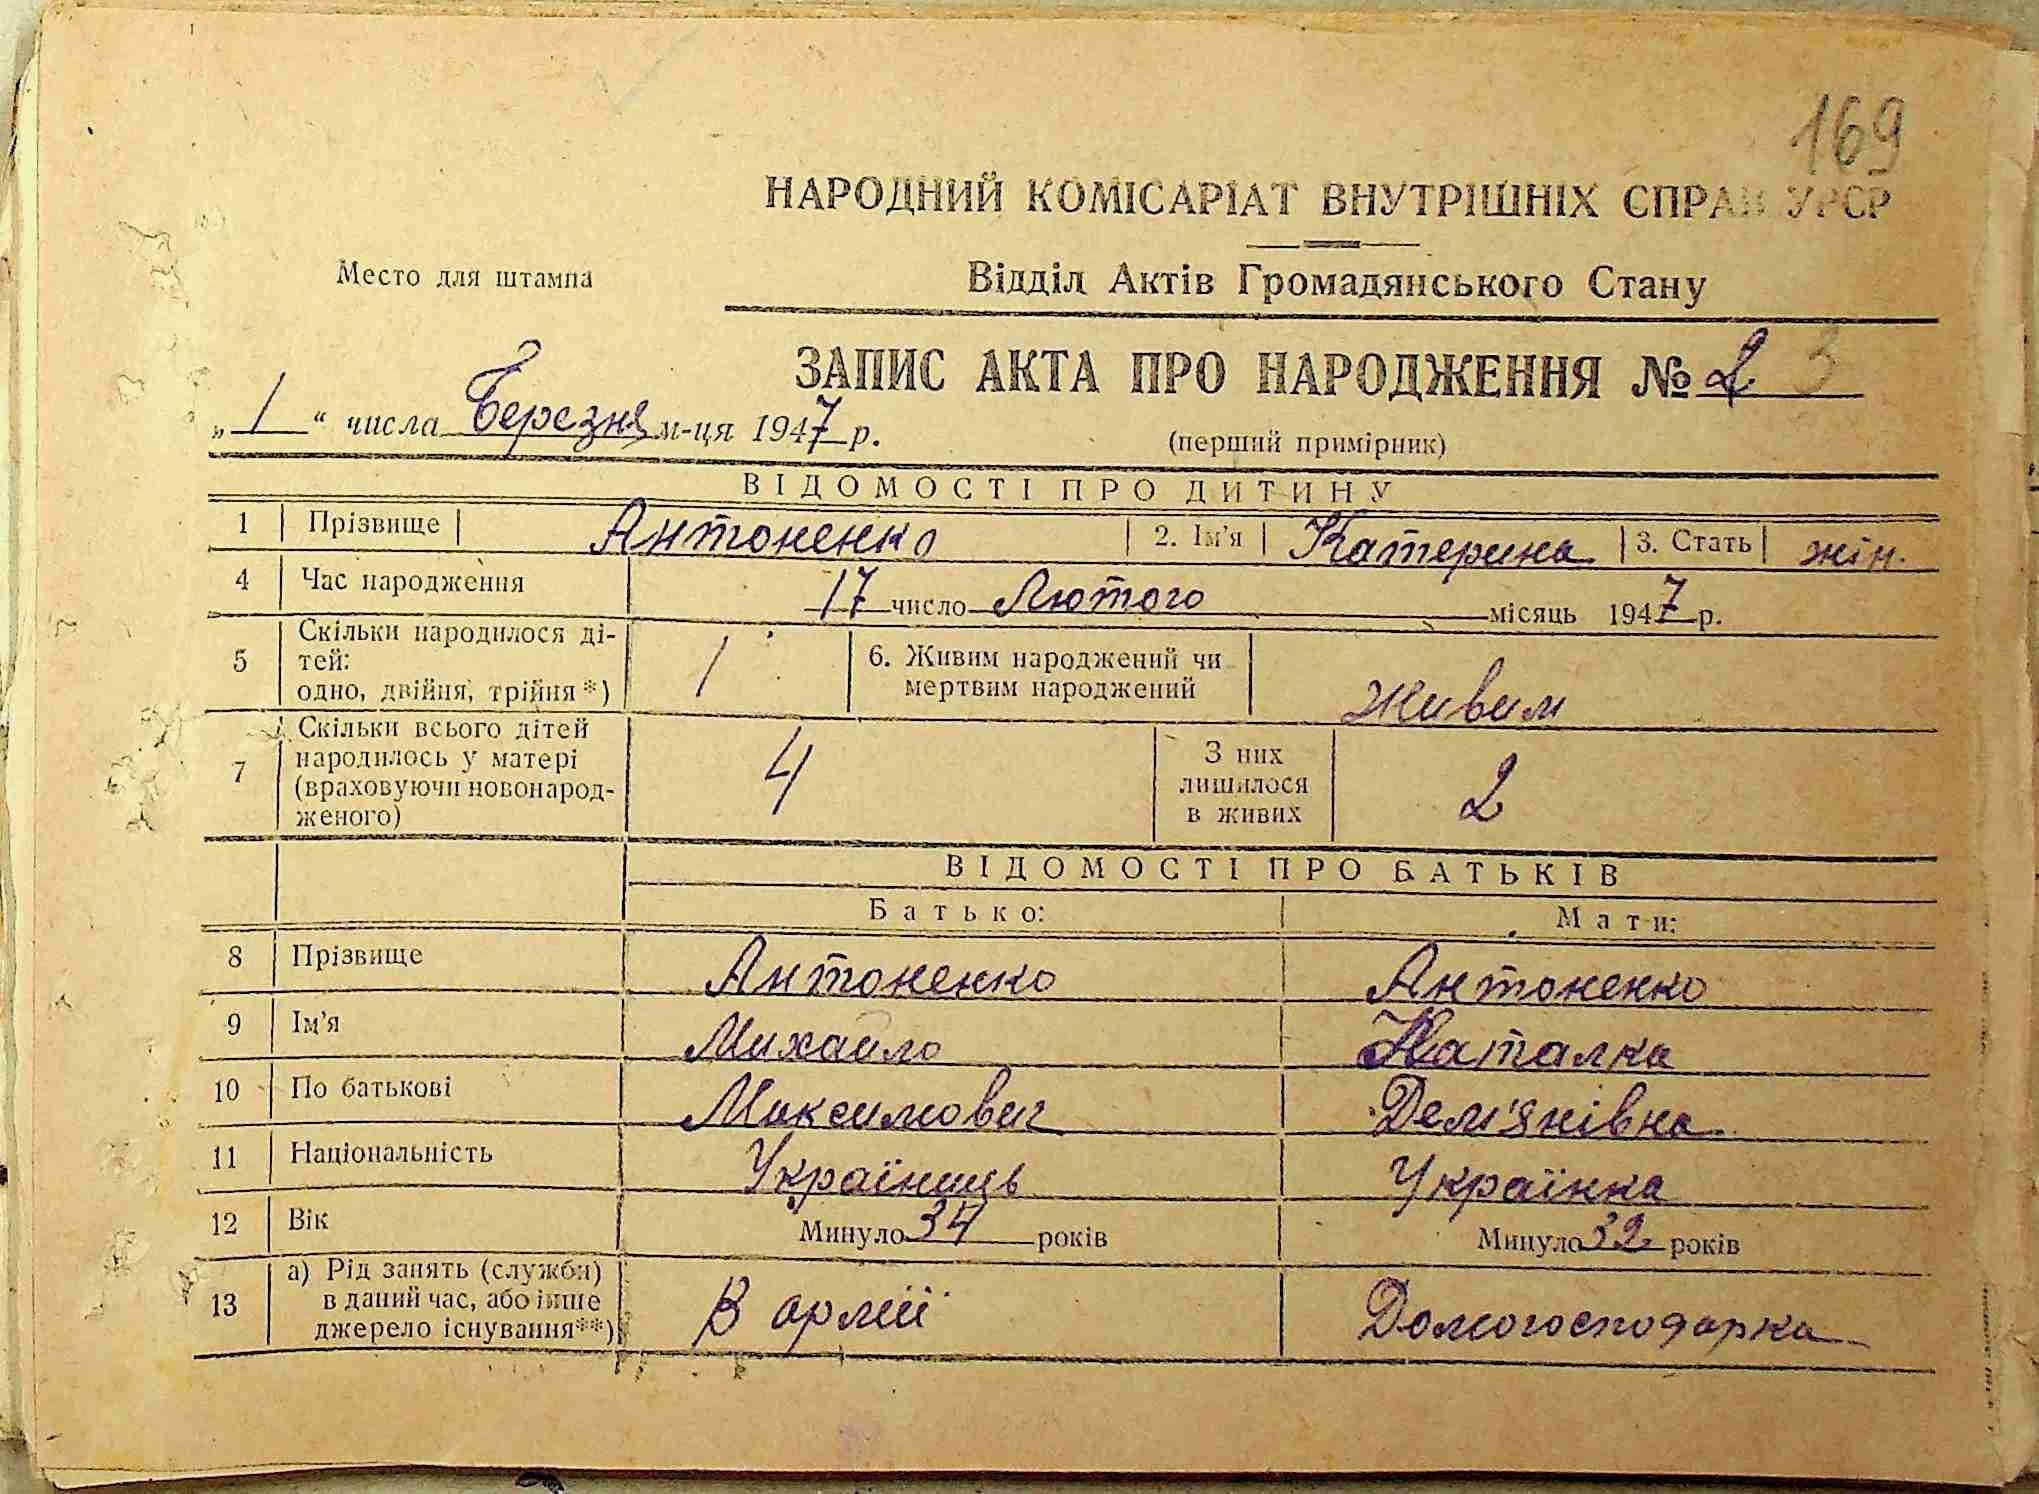 169
НАРОДНИЙ КОМІСАРІАТ ВНУТРІШНІХ СПРАВ УРСР
Место для штампа
Відділ Актів Громадянського Стану
ЗАПИС АКТА ПРО НАРОДЖЕННЯ № 2 3
„ 1 “ числа Березня м-ця 1947 р.
(перший примірник)
ВІДОМОСТІ ПРО ДИТИНУ
1 Прізвище Антоненко 2. Ім'я Катерина 3. Стать жін.
4 Час народження 17 число Лютого місяць 1947 р.
5 Скільки народилося ді-
тей:
одно, двійня, трійня*) 1 6. Живим народжений чи
мертвим народжений Живим
7 Скільки всього дітей
народилось у матері
(враховуючи новонарод-
женого) 4 З них
лишилося
в живих 2
ВІДОМОСТІ ПРО БАТЬКІВ
Батько: Мати:
8 Прізвище Антоненко Антоненко
9 Ім'я Михайло Наталка
10 По батькові Максимович Дем'янівна
11 Національність Українець Українка
12 Вік Минуло 34 років Минуло 32 років
13 а) Рід занять (служби)
в даний час, або інше
джерело існування**) В армії Домогосподарка